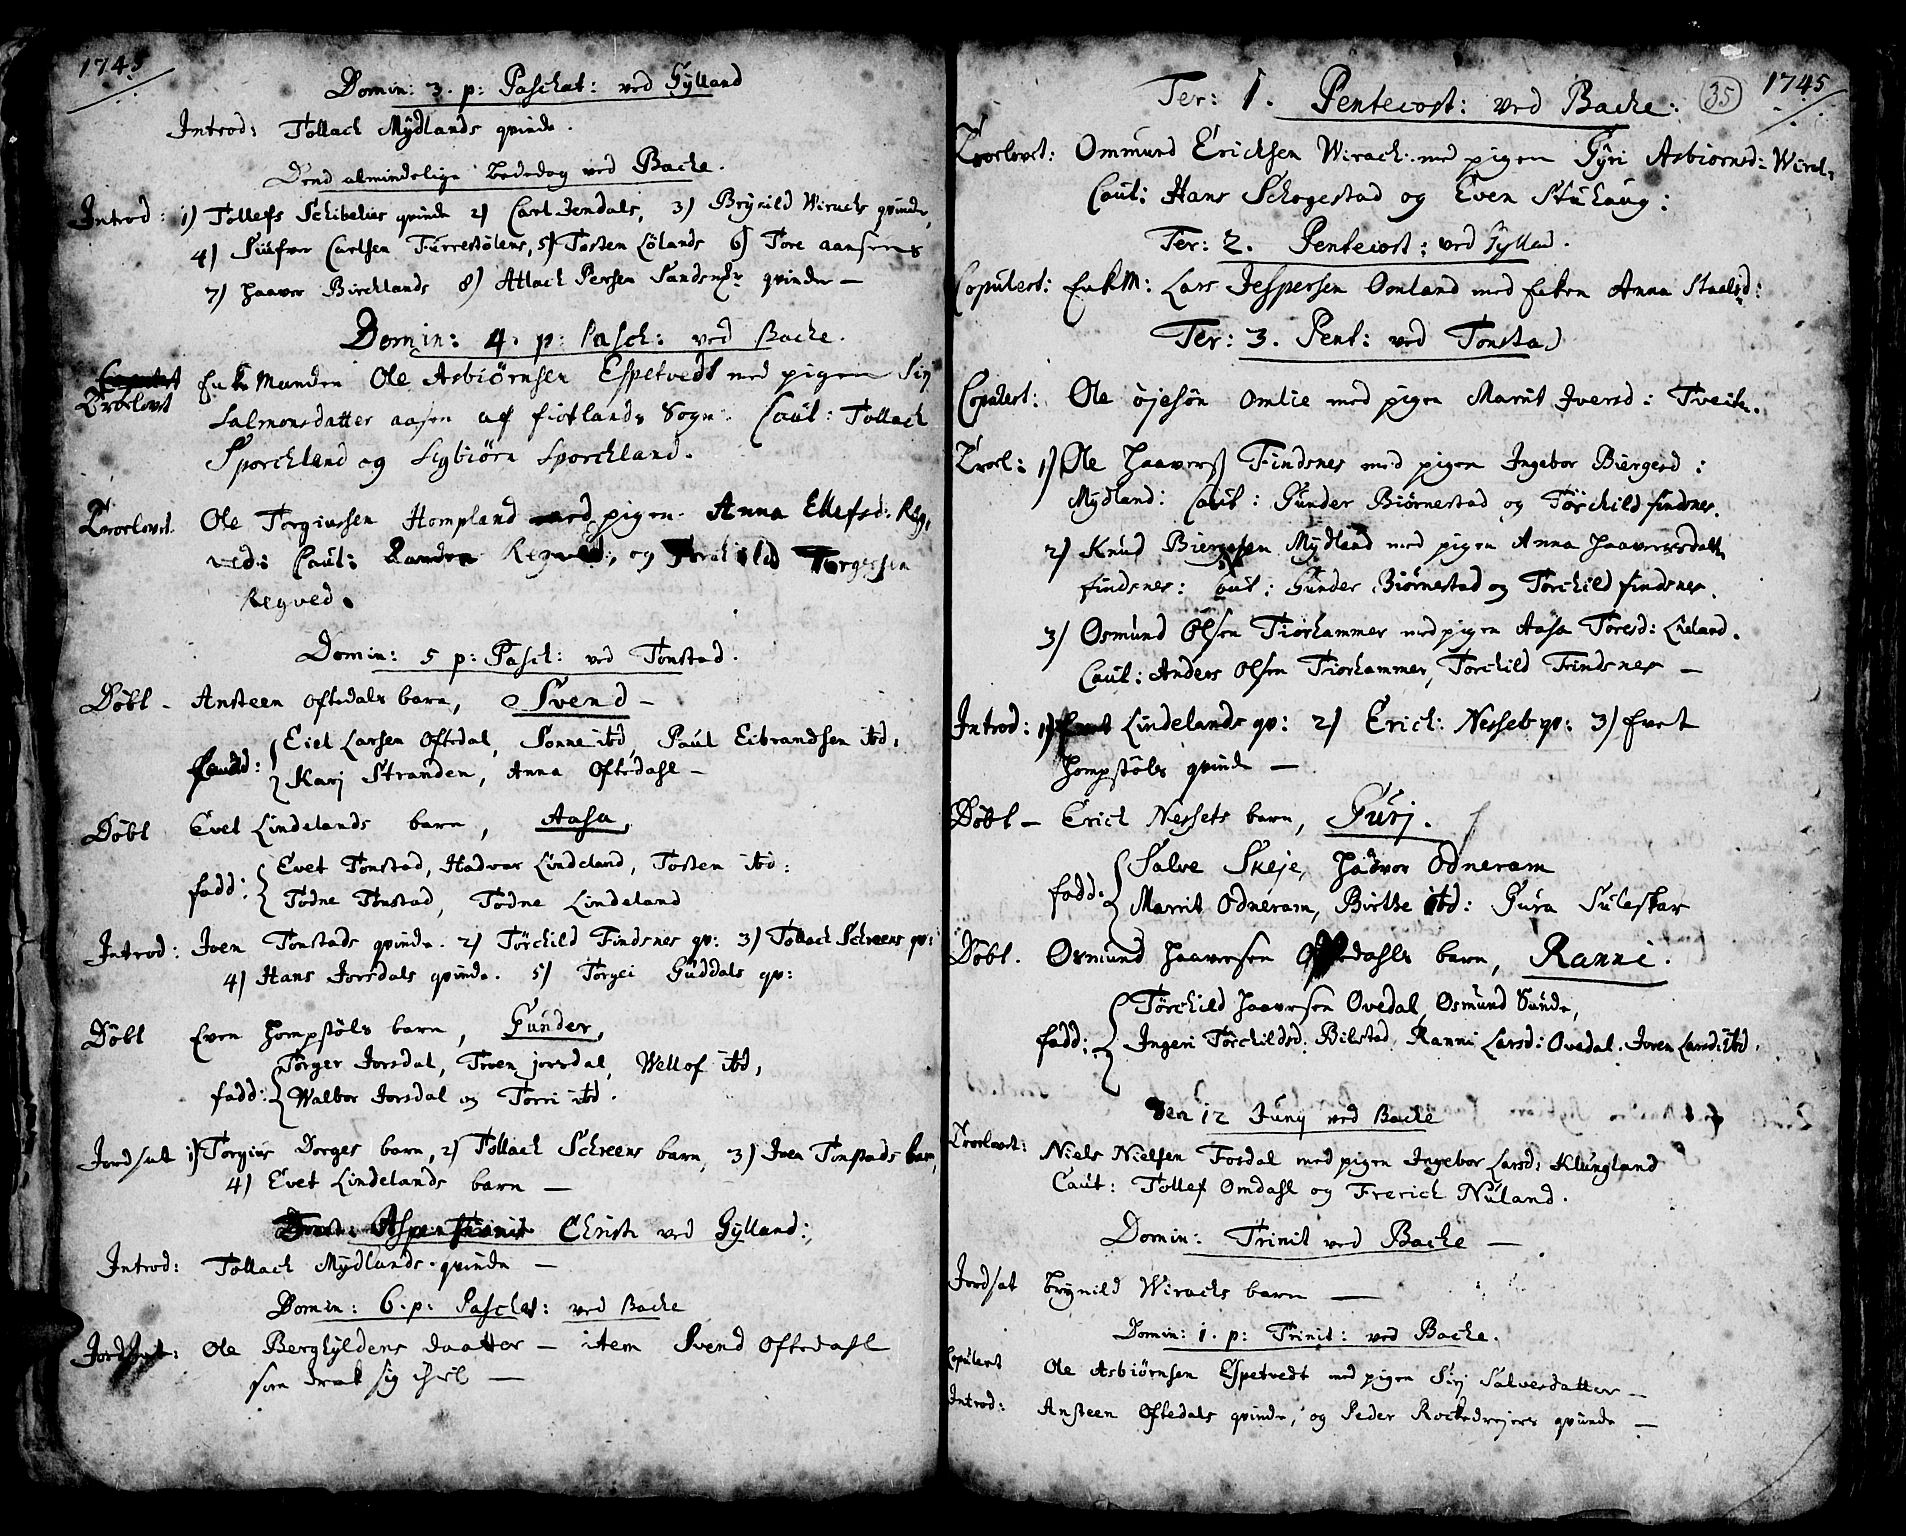 1745
Domin: 3. p: Paschat: ved Gÿlland
Introd: Tollach Mÿdlands qvinde.
Dend almindelige Bededag ved Backe.
Introd: 1) Tollefs Schibelies qvinde 2) Carl Jendals, 3) Brÿnild Wirachs qvinde,
4) Siufver Carlsen Turrestölens, 5) Tosten Lölands 6) Tore aansens
7) Haaver Bircklands 8) Atlach Persen Sandsmr qvinder —
Domin: 4. p: Pasch: ved Backe.
Troelovet Enke Manden Ole Asbiörnsen Espetvedt med pigen Sirj
Salmonsdatter aasen af fiotlands Sogn: Caut: Tollach
Sporckland og Sigbiörn Sporckland.
Troelovet. Ole Torgiussen Hompland med pigen Anna Ellefsd: Reg,
ved: Caut: Regved, og Torgersen
Regved.
Domin: 5 p: Pasch: ved Tonstad.
Döbt - Ansteen Oftedals barn, Svend —
fadd: Eiel Larsen Oftedal, Sonne ibd, Paul Eibrandsen ibd,
Karj Stranden, Anna Oftedahl —
Döbt Evet Lindelands barn, Aasa,
fadd: Evet Tonstad, Hadvar Lindeland, Tosten ibd:
Todne Tonstad, Todne Lindeland
Introd: Iven Tonstads qvinde. 2) Törchild Findsnes qv: 3) Tollach Schreens qv:
4) Hans Jorsdals qvinde. 5) Torgei Guddals qv:
Döbt Even Hompstöls barn, Gunder,
Torger Jorsdal, Troen jorsdal, Wellof ibd,
fadd: Walbor Jorsdal og Torri ibd.
Jordsat 1) Torgius Dorges barn, 2) Tollach Schreens barn, 3) Iven Tonstads barn,
4) Evet Lindelands barn —
Christi ved Gÿlland:,
Introd: Tollach Mÿdlands qvinde —
Domin: 6. p: Paschat: ved Backe
Jordsat: Ole Berghÿldens daatter — item Svend Oftedahl
som drak sig ihiel —
1745
35
Ter: 1. Pentecost: ved Backe:
Troelovet: Ommund Ericksen Wirach med pigen Gÿri Asbiornsd: Wirach,
Caut: Hans Schogestad og Even Stuhaug:
Ter: 2. Pentecost: ved Gyllad.
Copulert: EnkM: Lars Jespersen Omland med Enken Anna Staalsd:
Ter: 3. Pent: ved Tonstad
Copulert: Ole öjesön Omlie med pigen Marrit Iversd: Tveiten.
Troel: 1) Ole Haavers Findsnes med pigen Ingebor Biergesd:
Mÿdland: Caut: Gunder Biörnestad og Törchild findsnes.
2) Knud Biergesen Mÿdland med pigen Anna Haaversdatt
findsnes: Caut: Gunder Biörnestad og Törchild findsnes.
3) Osmund Olsen Tiorhammer med pigen Aasa Toresd: Lieland.
Caut: Anders Olsen Tiorhammer, Torchild Findsnes —
Introd: 1) Evet Lindelands qv: 2) Erich: Nesset qv: 3) Evet
Hompstöls qvinde —
Döbt — Erich Nessets barn, Gurj.
fadd: Salve Skeje, Hadvor Odneram
Marrit Odneram, Birthe ibd: Gura Suleskar
Döbt. Osmund Haaversen barn, Ranni.
Törchild Haaversen Ovedal, Osmund Sunde,
fadd: Ingeri Törchildsd: Bilstad, Ranni Larsd: Ovedal. Joren Larsd: ibd.
Den 12 Junÿ ved Backe
Troelovet: Niels Nielsen Fosdal med pigen Ingebor Larsd: Klungland
Caut: Tollef Omdahl og Frerich Nuland.
Domin: Trinit ved Backe —
Jordsat Brÿnild Wirachs barn —
Domin: 1. p: Trinit: ved Backe.
Copulert Ole Asbiörnsen Espetvedt med pigen Sirj Salvesdatter —
Introd: Ansteen Oftedals qvinde, og Peder Rockedrejers qvinde —